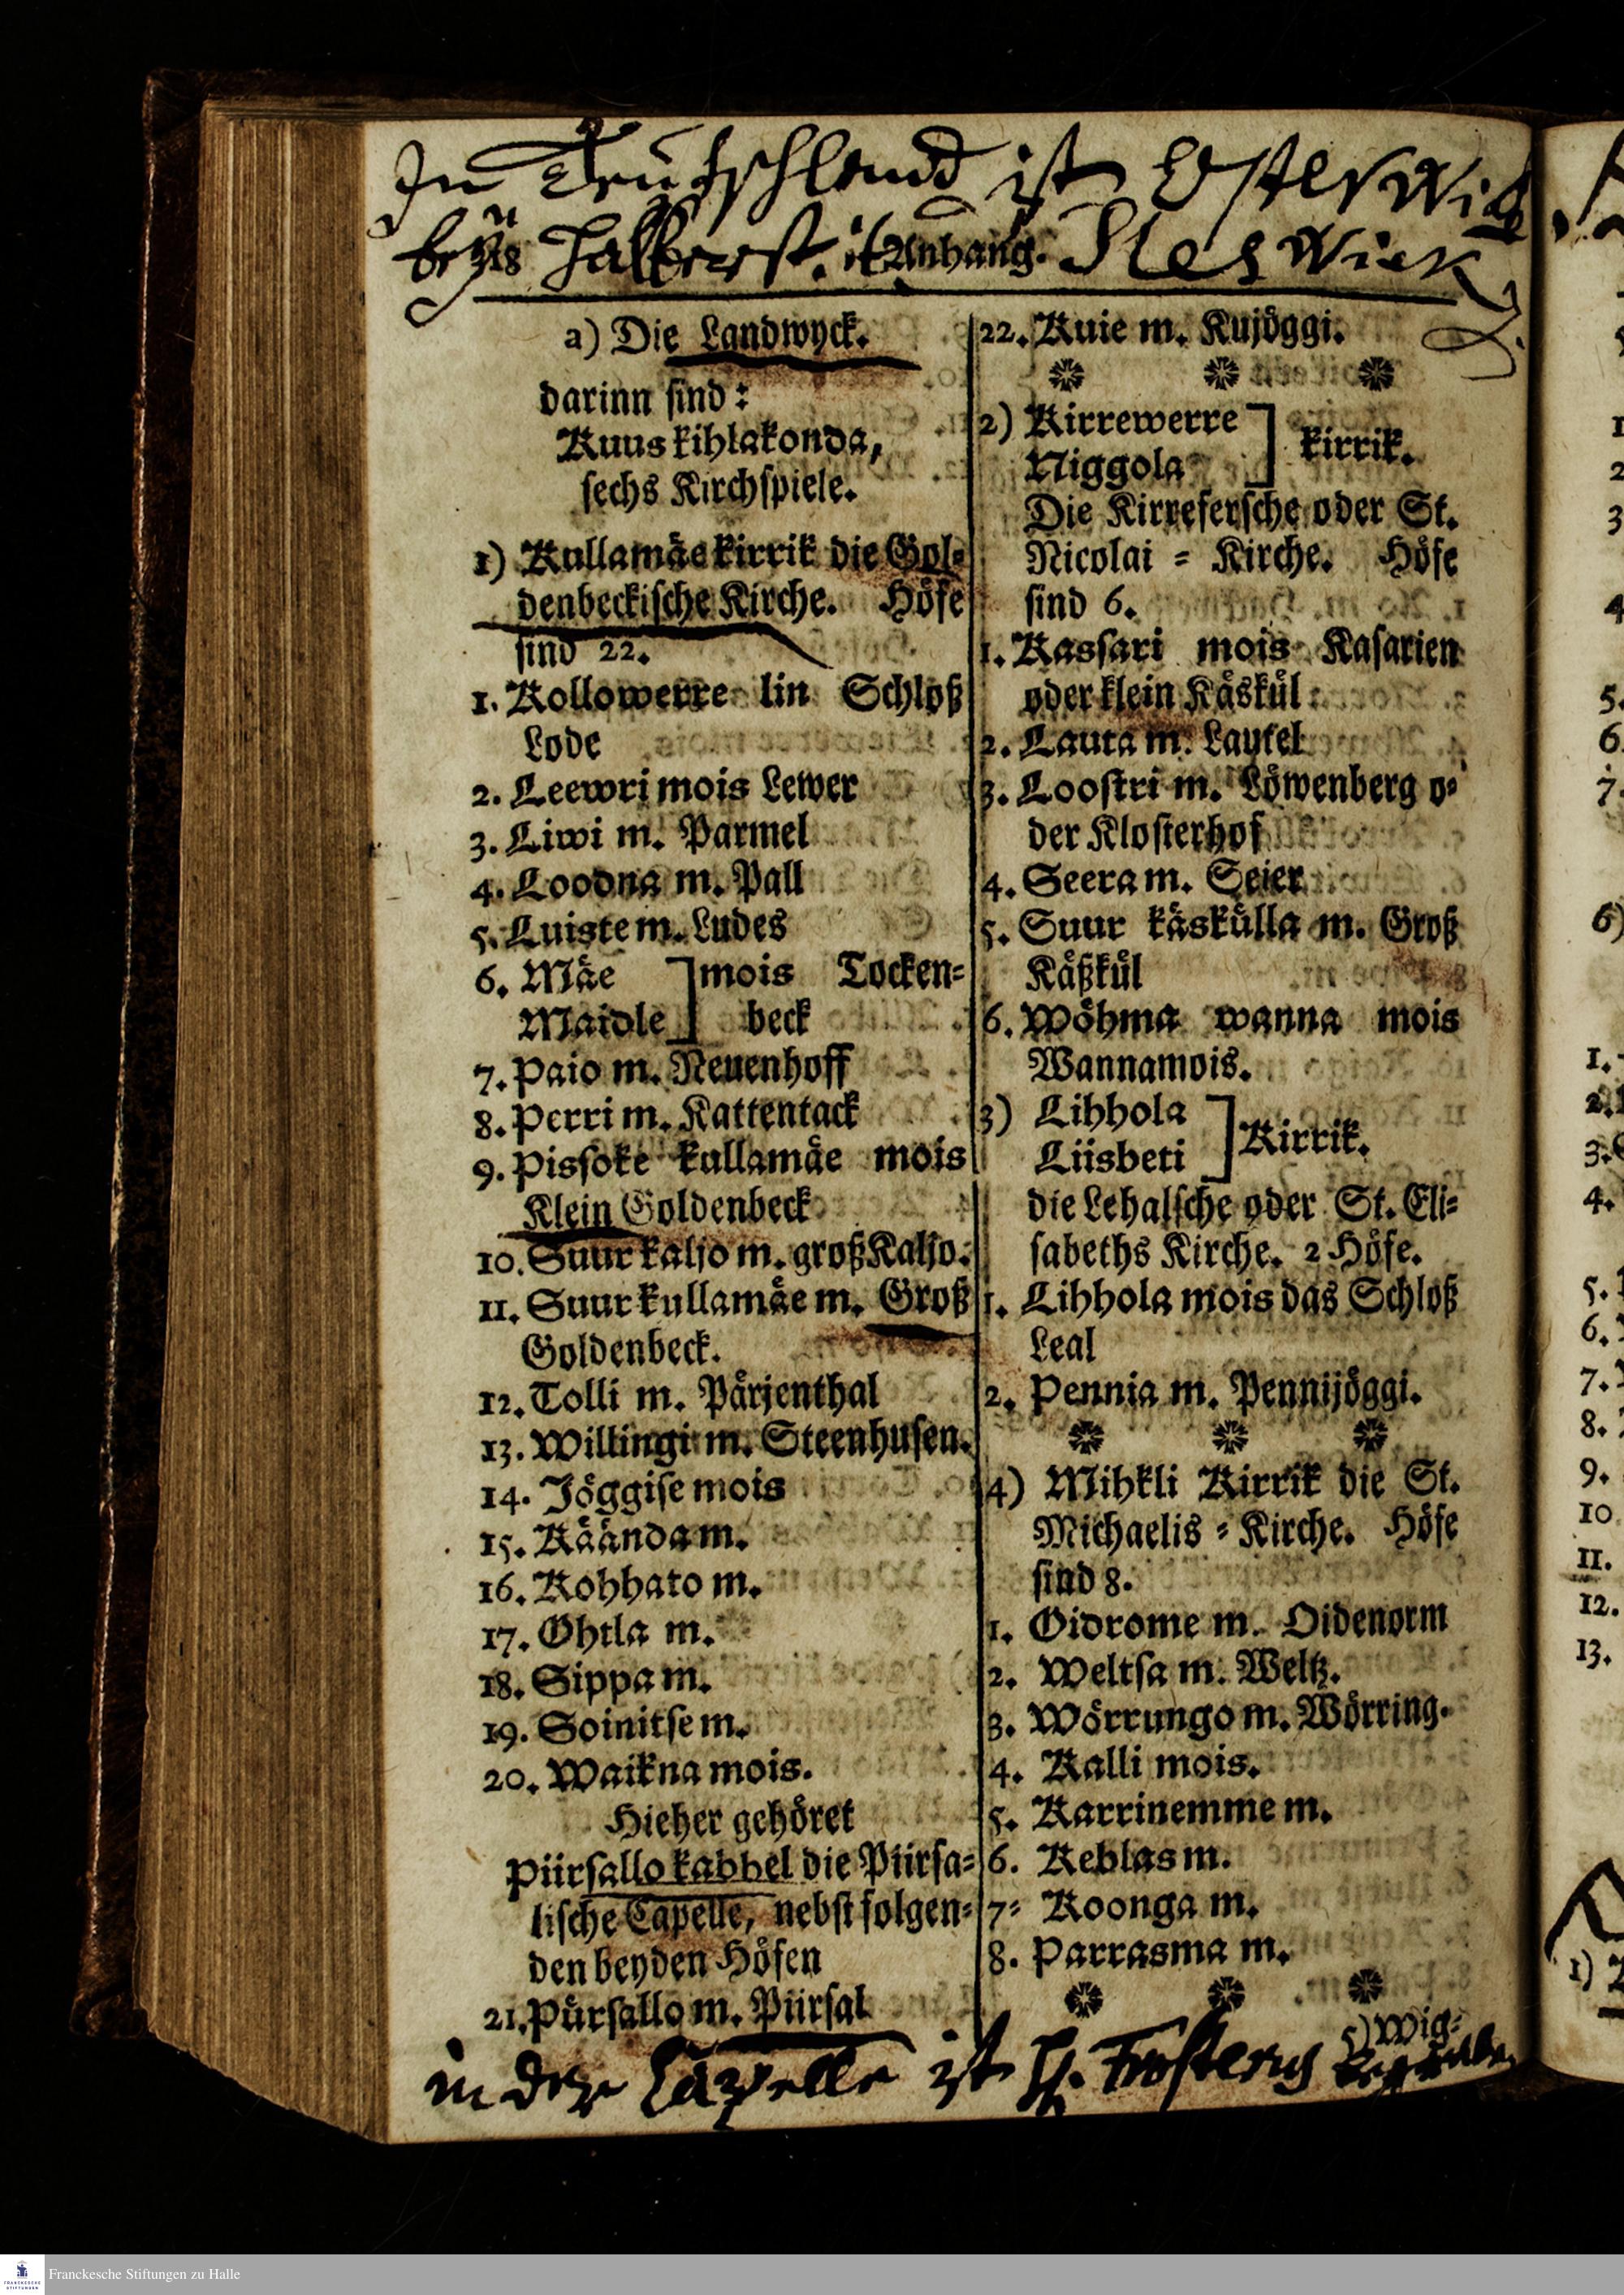 In Teutschland ist Osterwick,
bey Halberst. it Sleswiek
Anhang.
a) Die Landwyck.
darinn sind:
Kuus kihlakonda,
sechs Kirchspiele.
1) Kullamäe kirrik die Gol-
denbeckische Kirche. Höfe
sind 22.
1. Kollowerre lin Schloß
Lode
2. Leewri mois Lewer
3. Liwi m. Parmel
4. Loodna m. Pall
5. Luiste m. Ludes
6. Mäe ] mois Tocken-
Maidle ] beck
7. Paio m. Neuenhoff
8. Perri m. Kattentack
9. Pissoke kullamäe mois
Klein Goldenbeck
10. Suur kaljo m. groß Kaljo.
11. Suur kullamäe m. Groß
Goldenbeck.
12. Tolli m. Pärjenthal
13. Willingi m. Steenhusen.
14. Jöggise mois
15. Käända m.
16. Kohhato m.
17. Ohtla m.
18. Sippa m.
19. Soinitse m.
20. Waikna mois.
Hieher gehöret
Piirsallo kabbel die Piirsa-
lische Capelle, nebst folgen-
den beyden Höfen
21. Pürsallo m. Piirsal
22. Kuie m. Kujöggi.
2) Kirrewerre ] kirrik.
Niggola ]
Die Kirrefersche oder St.
Nicolai - Kirche. Höfe
sind 6.
1. Kassari mois Kasarien
oder klein Käskül
2. Lauta m. Lautel
3. Loostri m. Löwenberg o-
der Klosterhof
4. Seera m. Seier
5. Suur käskülla m. Groß
Käßkül
6. Wöhma wanna mois
Wannamois.
3) Lihhola ] Kirrik.
Liisbeti ]
die Lehalsche oder St. Eli-
sabeths Kirche. 2 Höfe.
1. Lihhola mois das Schloß
Leal
2. Pennia m. Pennijöggi.
4) Mihkli Kirrik die St.
Michaelis - Kirche. Höfe
sind 8.
1. Oidrome m. Oidenorm
2. Weltsa m. Weltz.
3. Wörrungo m. Wörring.
4. Kalli mois.
5. Karrinemme m.
6. Keblas m.
7. Koonga m.
8. Parrasma m.
5) Wig-
in der Capelle ist H.
Franckesche Stiftungen zu Halle